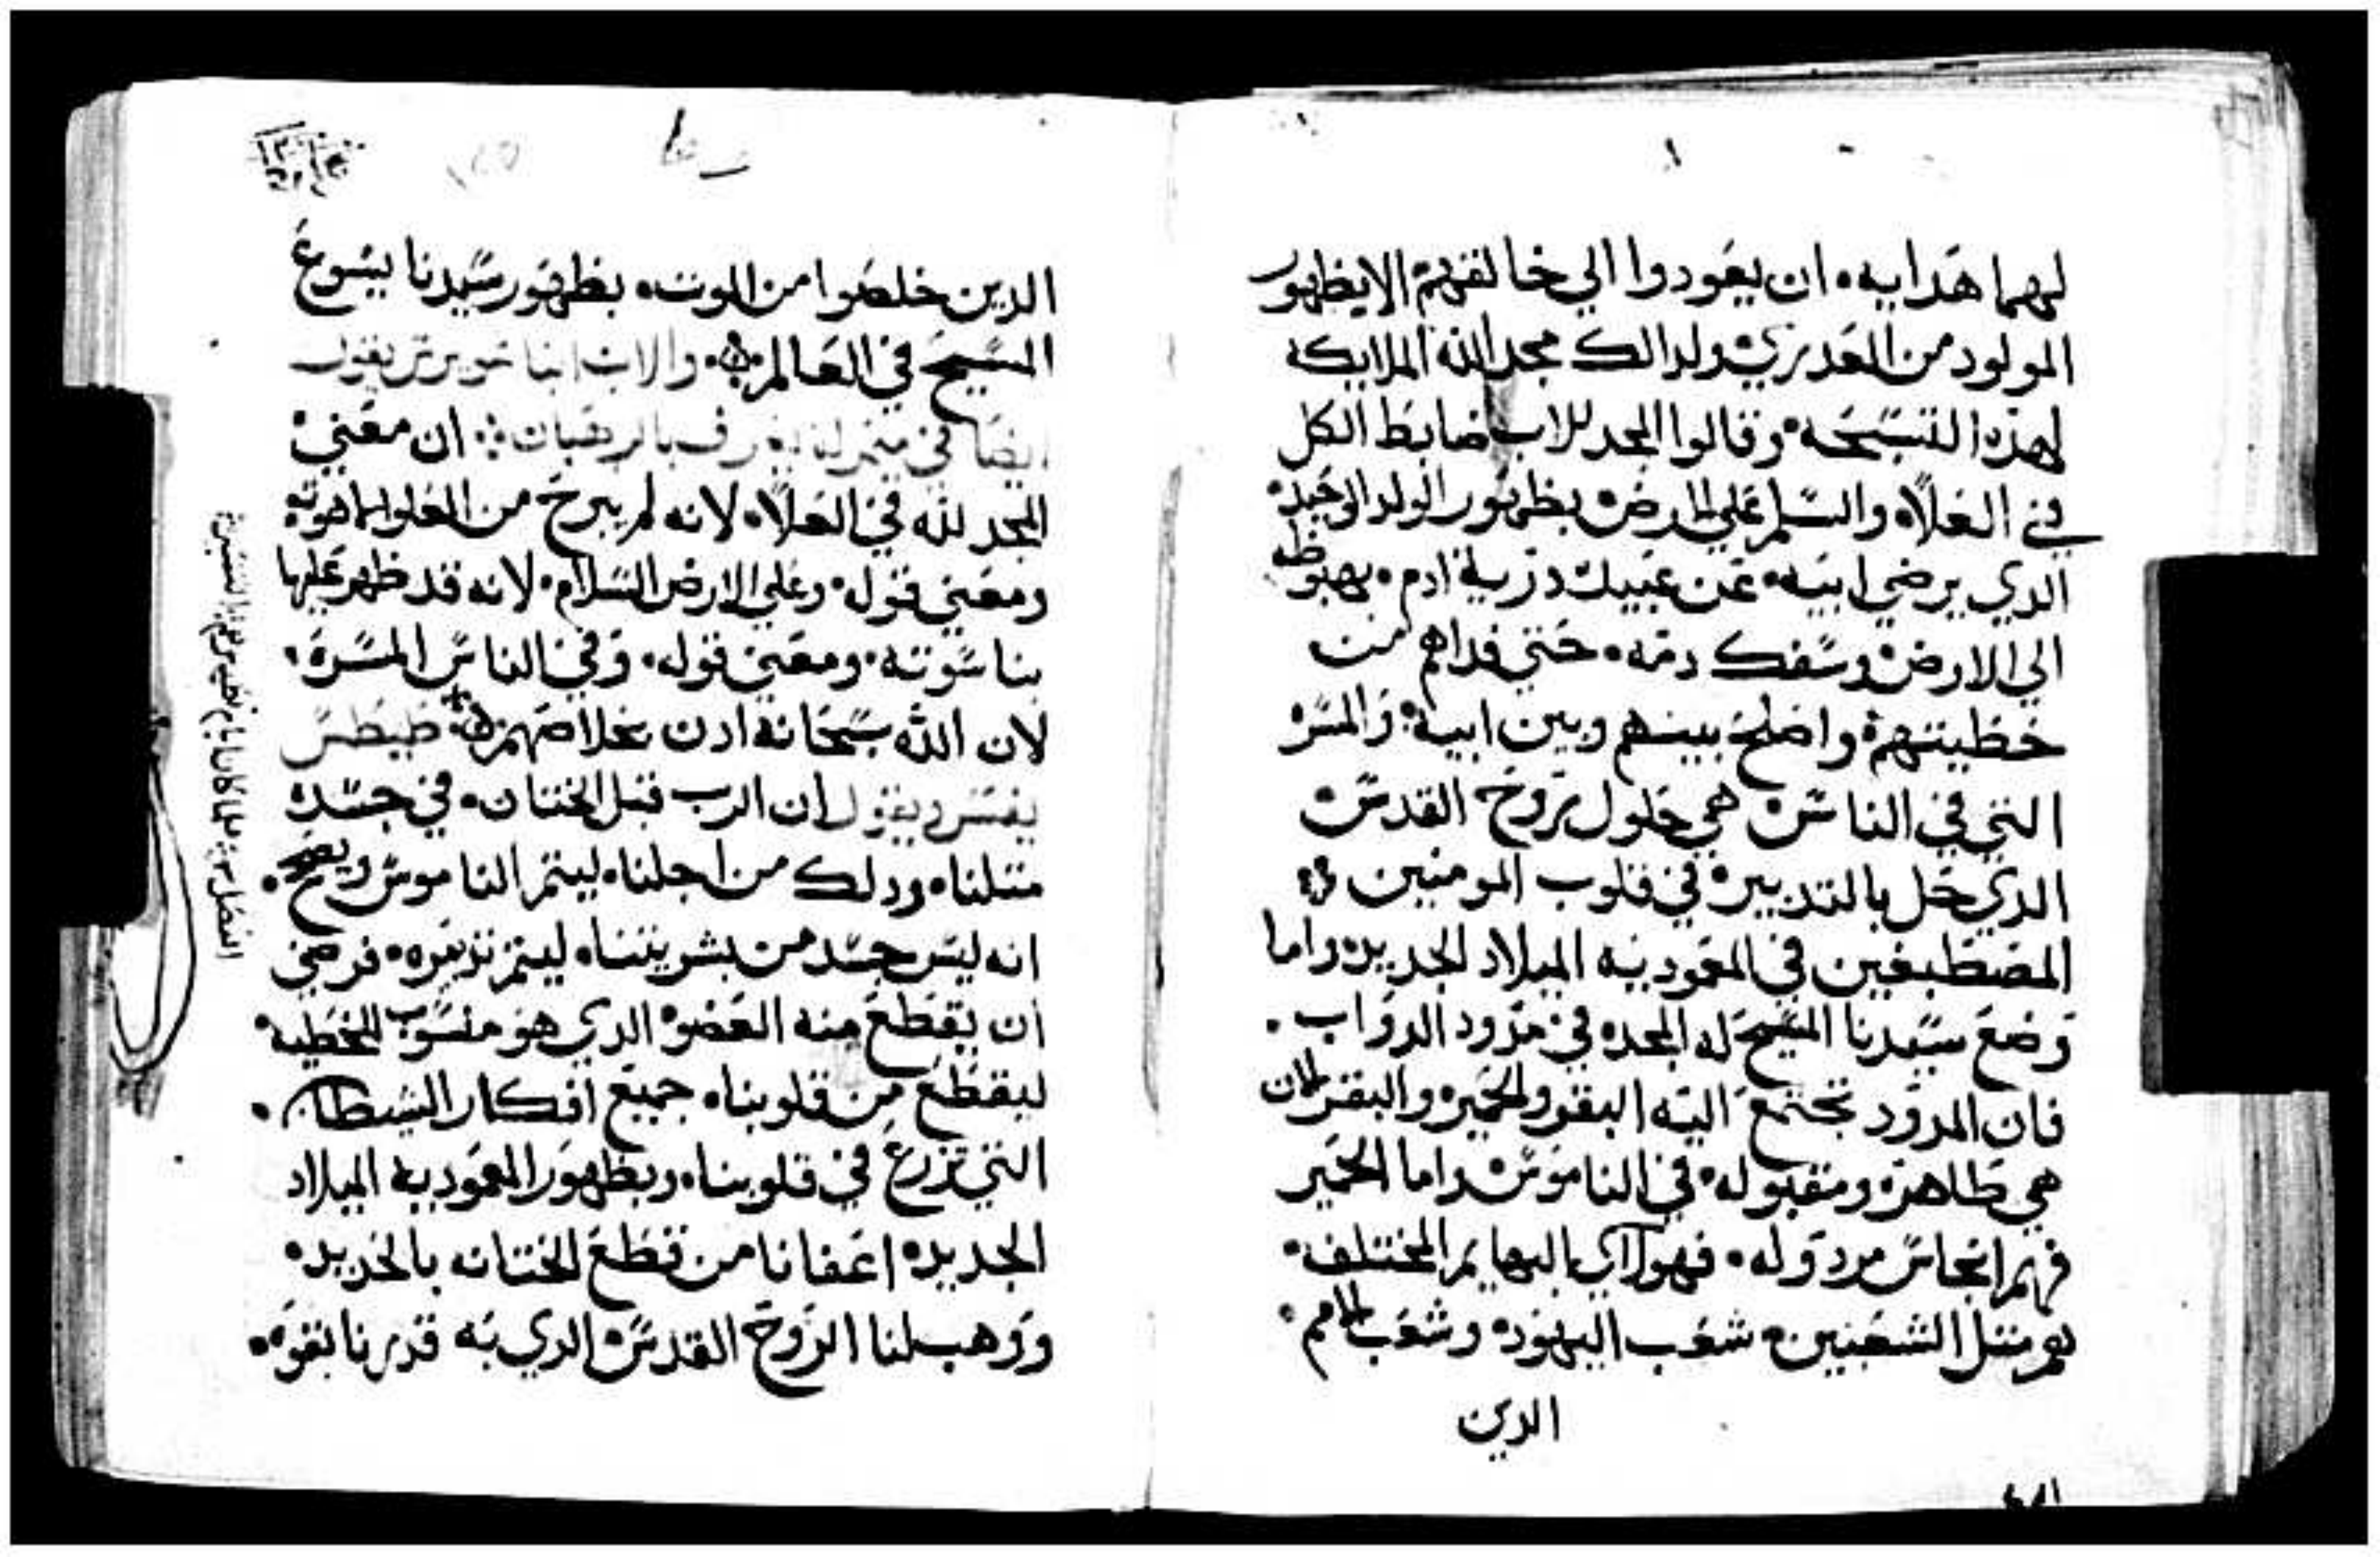 لهما هدايه. ان يعودوا الي خالقهم الا بظهور
المولود من العدري ولدالك مجد الله الملايكه
لهذه التسبحه وقالوا المجد للاب ضابط الكل
في العلاه والسلم علي الارض بظهور الولد الوحيد
الدي يرضي ابيه. عن عبيك درية ادم. بهبوطه
الي الارض وسفك دمه. حتي فداهم من
خطيتهم واصلح بينهم وبين ابيه. والمسر
التي في الناس هي حلول روح القدس
الدي حل بالتدبير في قلوب المومنين
المصطبغين في المعموديه الميلاد الجديده واما
وضع سيدنا المسيح له المجد في مدود الدواب.
فان المدود تجتمع اليه البقر والحمير والبقر لان
هي طاهره ومقبوله في الناموس واما الحمير
فهم انجاس مردوله. فهولاي البهايم المختلفه.
هم متل الشعبين. شعب اليهود وشعب الامم.
الدين
الدين خلصوا من الموت. بظهور سيدنا يسوع
المسيح في العالم. والاب انبا سويرس يقول
ايضا في ميمر له يعرف بالرهبان. ان معني
المجد لله في العلاه لانه لم يبرح من العلو بلاهوته
ومعني قوله وعلي الارض السلام. لانه قد ظهر عليها
بناسوته. ومعني قوله. وفي الناس المسره.
لان الله سبحانه ادن بخلاصهم. طيطس
يفسر ويقول ان الرب قبل الختان. في جسده
متلنا. ودلك من اجلنا. ليتم الناموس ويصح.
انه ليس جسد من بشريتنا. ليتم تدبيره. فرضي
ان يقطع منه العضو الدي هو منسوب للخطيه
ليقطع من قلوبنا. جميع افكار الشيطان.
التي تزرع في قلوبنا. وبظهور المعموديه الميلاد
الجديده اعفانا من قطع الختانه بالحديد.
ووهب لنا الروح القدس الدي به قدرنا نقوه.